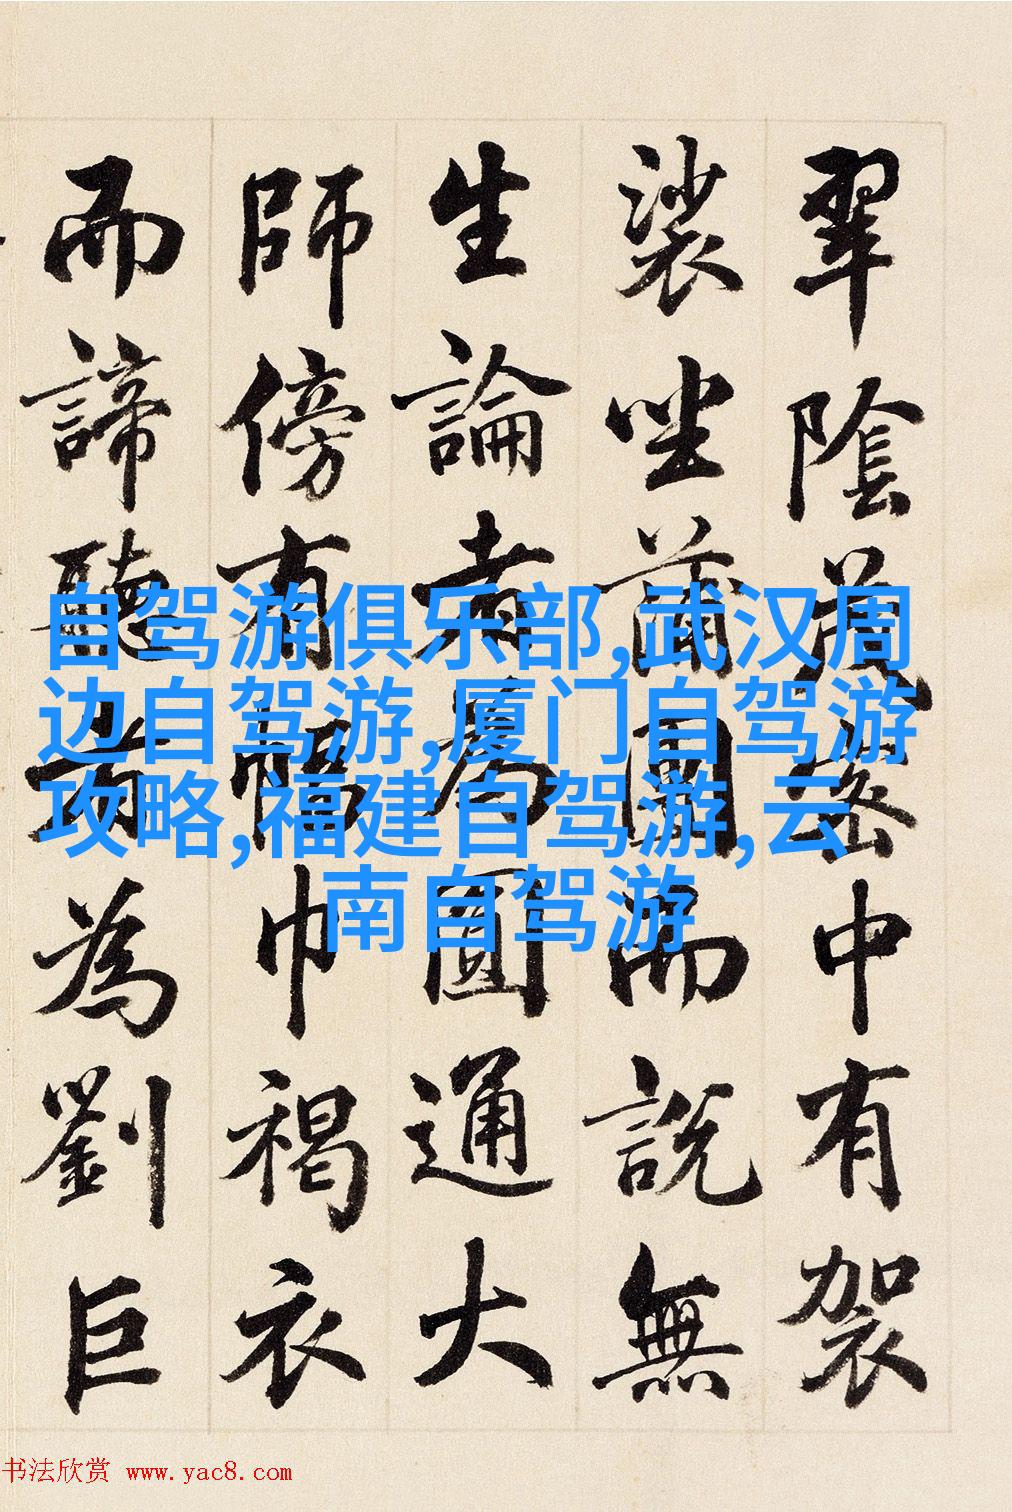 翠陰茂密中有袈
裟坐蒲團而說無
生論者為圓通大
師傍有幅巾褐衣
而諦聽者為劉巨
自驾游俱乐部,武汉周
边自驾游,厦门自驾游
攻略,福建自驾游,云
南自驾游
书法欣赏 www.yac8.com